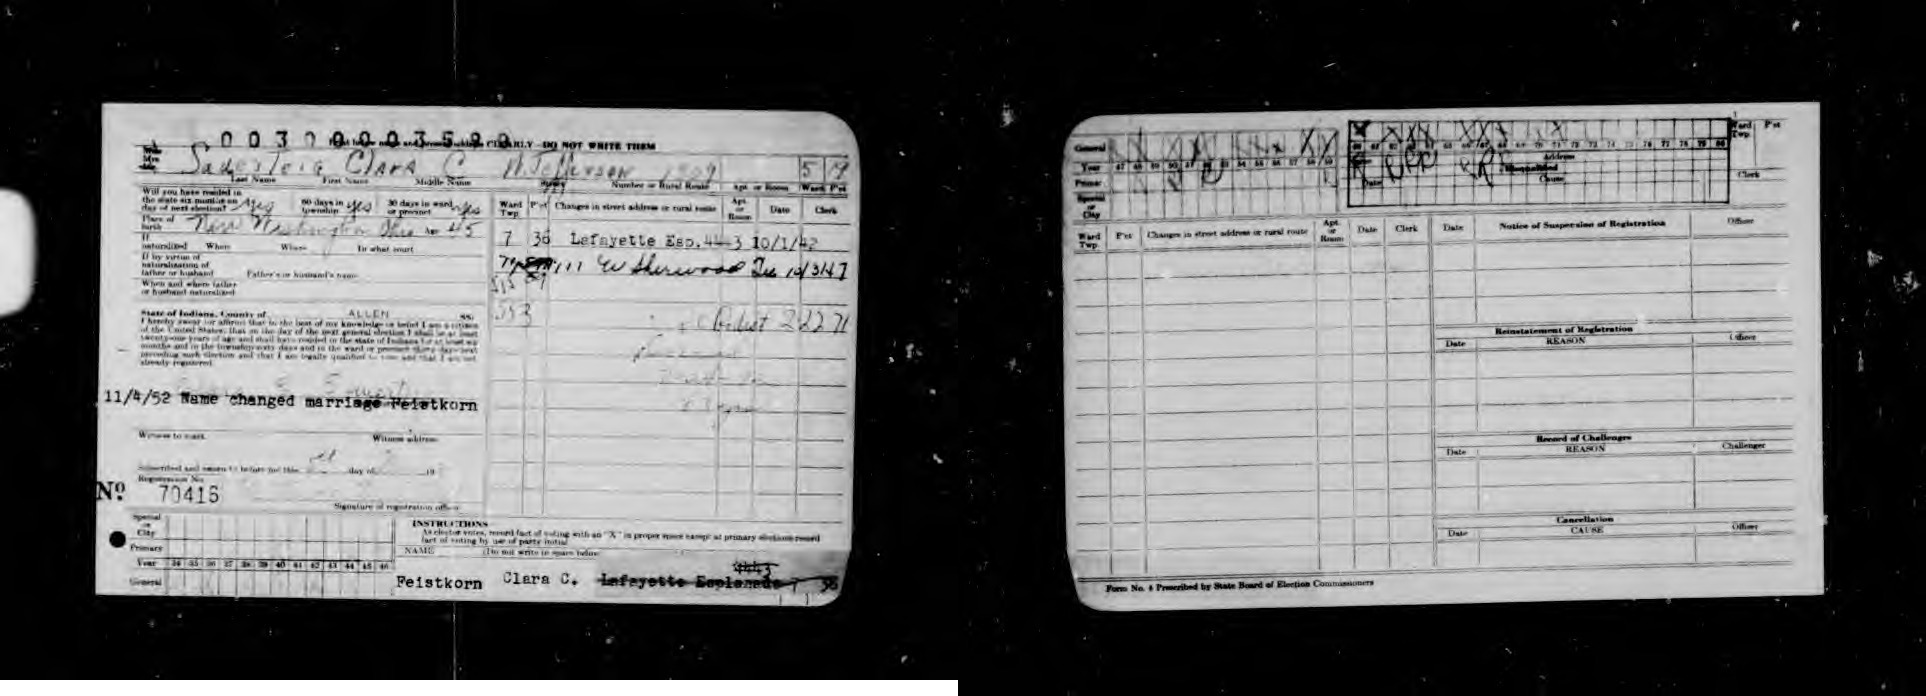 CLEARLY - DO NOT WRITE THEM
Clara C W. Jefferson 5
Last Name First Name Middle Name Number or Rural Route Apt. or Room Ward P'ct
Will you have resided in the state six months on day of next election? yes 60 days in township yes 30 days in ward or precinct yes
Place of birth New Washington Ohio Age 45
If naturalized When Where In what court
If by virtue of naturalization of father or husband Father's or husband's name
When and where father or husband naturalized
Ward Twp P'ct Changes in street address or rural route Apt. or Room Date Clerk
7 36 Lafayette Esp. 44-3 10/1/42
111 W Sherwood
2 22 71
State of Indiana, County of ALLEN SS:
I hereby swear (or affirm) that to the best of my knowledge or belief I am a citizen
of the United States; that on the day of the next general election I shall be at least
twenty-one years of age and shall have resided in the state of Indiana for at least six
months and in the township sixty days and in the ward or precinct thirty days next
preceding such election and that I am legally qualified to vote and that I am not
already registered.
11/4/52 Name changed marriage Feistkorn
Witness to mark Witness address
Subscribed and sworn to before me this day of 19
Registration No.
Nº 70416
Signature of registration officer
Special or City
Primary
Year 34 35 36 37 38 39 40 41 42 43 44 45 46
General
INSTRUCTIONS
As elector votes, record fact of voting with an "X" in proper space except at primary elections record
fact of voting by use of party initial.
NAME (Do not write in space below)
4443
Feistkorn Clara C. Lafayette Esplanade 7 36
General
Year 47 48 49 50 51 52 53 54 55 56 57 58 59
Primary
Special or City
60 61 62 63 64 65 66 67 68 69 70 71 72 73 74 75 76 77 78 79 80
Ward Twp P'ct
Address
Date Cause
Clerk
Ward Twp. P'ct Changes in street address or rural route Apt. or Room Date Clerk
Date Notice of Suspension of Registration Officer
Reinstatement of Registration
Date REASON Officer
Record of Challenges
Date REASON Challenger
Cancellation
Date CAUSE Officer
Form No. 4 Prescribed by State Board of Election Commissioners